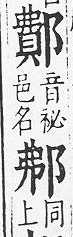 鄪音祕邑名𨛑同上